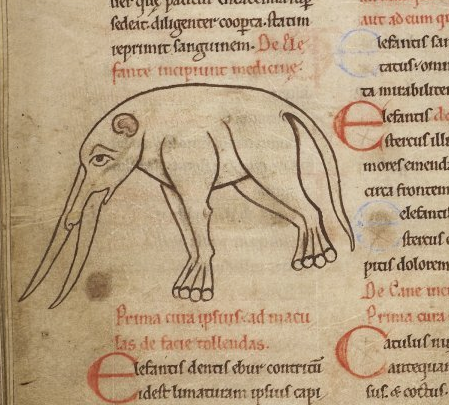 sedeat. diligenter coop̄ta. statim
reprimit sanguinem. De Ele
fante incipiunt medicine.
Prima cura ipsius. ad macu
las de facie tollendas.
Elefantis dentis ebur contritū
idest limaturam ipsius capi
aut ad eum qu
Elefantis san
tatus. omn
ta mirabiliter
Elefantis de
stercus illi
mores emenda
circa frontem
Elefanti
stercus c
pitis dolorem
De Cane inci
Prima cura
Catulus nu
antequa
sus. & coctus.